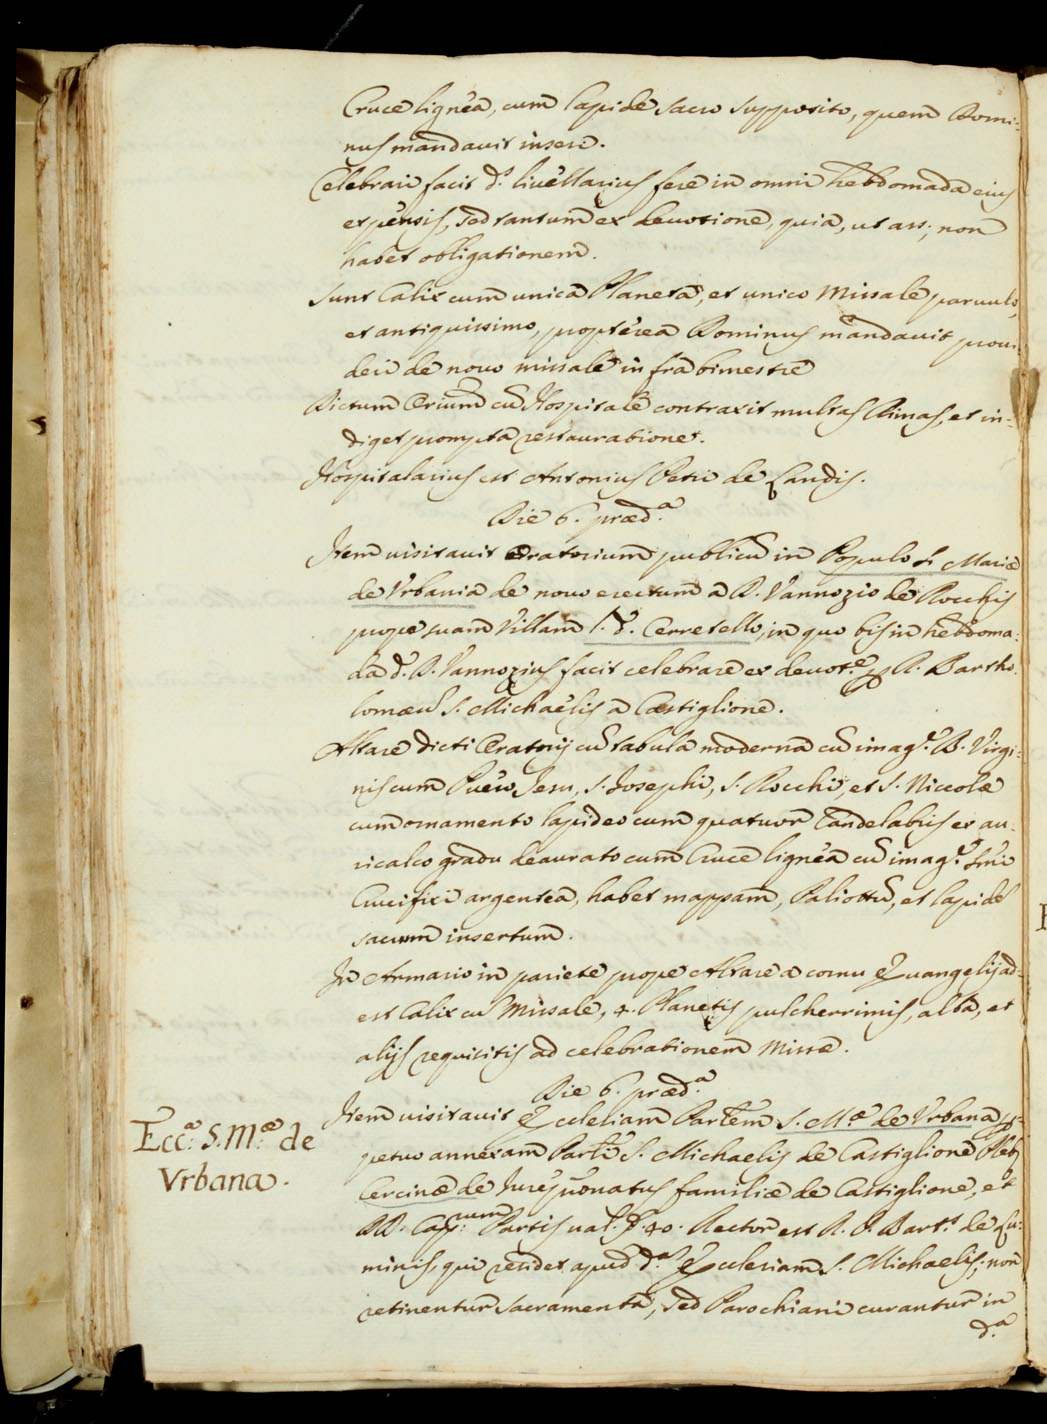 Cruce lignea, cum lapide sacro supposito, quem Domi-
nus mandavit inseri.
Celebrari facit d.s livellarius fere in omni hebdomada eius
expensis, sed tantum ex devotione, quia, ut ass; non
habet obligationem.
Sunt Calix cum unica Planeta, et unico Missale parvulo,
et antiquissimo, propterea Dominus mandavit provi-
deri de novo missale infra bimestre
Dictum Orium cū Hospitale contraxit multas Rimas, et in-
diget prompta restauratione.
Hospitalarius est Antonius Petri de Landis.
Die 6. præd.a
Item visitavit Oratorium publicū in Populo S. Mariæ
de Urbania de novo erectum a D. Vannozio de Rocchis
prope suam Villam l. d. Cerretello, in quo bis in hebdoma-
da d. D. Vannozius facit celebrare ex devot.e R. Bartho-
lomæū S. Michaelis a Castiglione.
Altare dicti Oratorij cū tabula moderna cū imag.e B. Virgi-
nis cum Puero Jesu, S. Josephi, S. Rocchi, et S. Niccolæ
cum ornamento lapideo cum quatuor Candelabris ex au-
ricalco gradu deaurato cum Cruce lignea cū imag.e
Crucifixi argentea, habet mappam, Paliottū, et lapidē
sacrum insertum.
In Armario in pariete prope Altare a cornu Evangelij ad-
est Calix cū Missale, 4. Planetis pulcherrimis, alba, et
alijs requisitis ad celebrationem Missæ.
Die 6. præd.a
Ecc.a S. M.æ de
Urbana.
Item visitavit Ecclesiam Parlem S. M.æ de Urbana per-
petuo annexam Parli S. Michaelis de Castiglione Pleb
Cercinæ de Jurepronatus familiæ de Castiglione, et
DD. Cap: num Partis val. 40. Rector est R. D. Bart.s de Lu-
minis, qui residet apud d.a Ecclesiam S. Michaelis; non
retinentur sacramenta, sed Parochiani curantur in
d.a